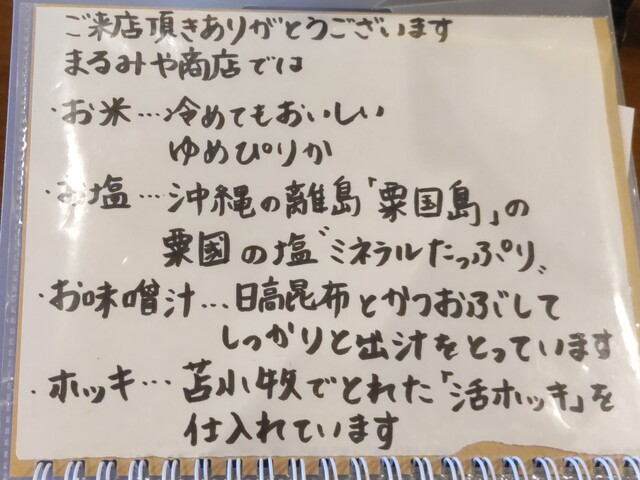 ご来店頂きありがとうございます
まるみや商店では
・お米…冷めてもおいしい
ゆめぴりか
・お塩…沖縄の離島「粟国島」の
粟國の塩〝ミネラルたっぷり〟
・お味噌汁…日高昆布とかつおぶしで
しっかりと出汁をとっています
・ホッキ…苫小牧でとれた「活ホッキ」を
仕入れています